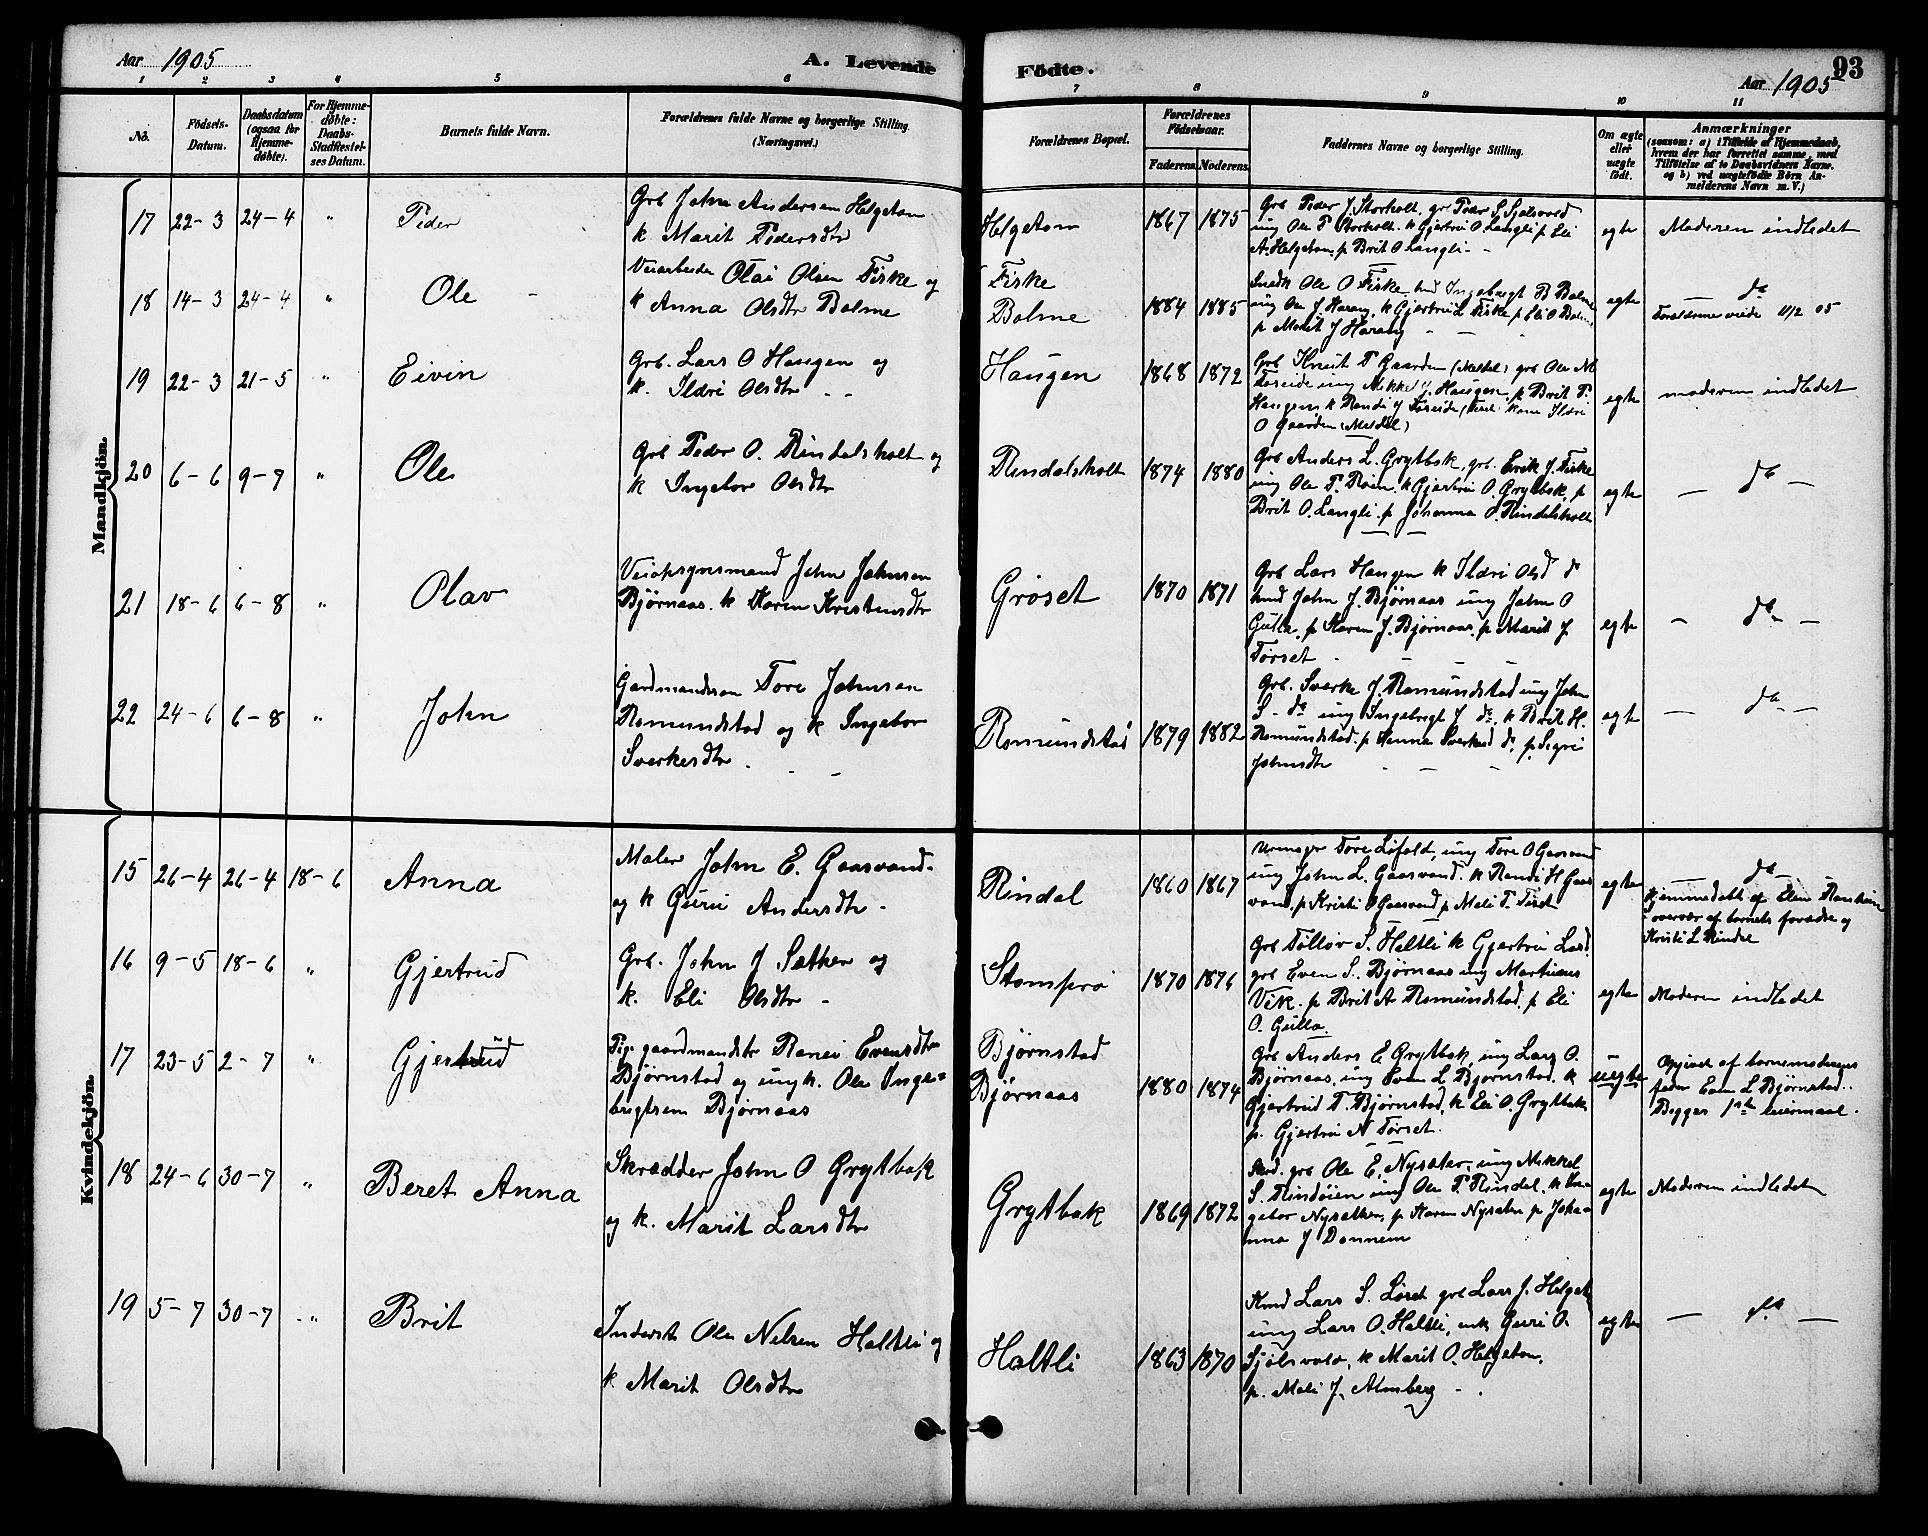 Aar 1905
A. Levende
Födte.
93
Aar 1905
1 2 3 4 5 6 7 8 9 10 11
No.
Födsels-
Datum.
Daabsdatum
(ogsaa for
Hjemme-
döbte).
For Hjemme-
döbte:
Daabs-
Stadfæstel-
ses Datum.
Barnets fulde Navn.
Forældrenes fulde Navne og borgerlige Stilling.
(Næringsvei.)
Forældrenes Bopæl.
Forældrenes
Födselsaar.
Faderens. Moderens.
Faddernes Navne og borgerlige Stilling.
Om ægte
eller
uægte
født.
Anmærkninger
(saasom: a) i Tilfælde af Hjemmedaab,
hvem der har forrettet samme, med
Tilføielse af to Daabsvidners Navne.
og b) ved uægtefødte Børn An-
melderens Navn m. V.)
Mandkjön.
17 22-3 24-4 " Peder
Grb John Andersen Helgetun
k Marit Pedersdtr
Helgetun 1867 1875
Grb Peder J. Storholt. gr Peder S Sjølsvold
ung Ole P Storholt. k Gjertrui O Langli p Eli
A. Helgetun. p Brit O Langli -
egte
Moderen indledet
18 14-3 24-4 " Ole -
Veiarbeider Olai Olsen Fiske og
k Anna Olsdtr Bolme
Fiske
Bolme 1884 1885
Snedk Ole O Fiske hmd Ingebrigt B Bolme
ung Ole J Harang, k Gjertrui L Fiske p Eli O Bolme
p Marit J Harang -
egte
— do —
Forældrene viede 11/2 05
19 22-3 21-5 " Eivin
Grb. Lars O Haugen og
k. Ildri Olsdtr - -
Haugen 1868 1872
Grb Knut T Gaarden (Meldal) grb Ole M
Foreide ung Mikkel J. Haugen, p Brit P.
Haugen, k Randi J Foreide, kone Ildri
O Gaarden (Meldal)
egte
moderen indledet
20 6-6 9-7 " Ole
Grb Peder O. Rindalsholt og
k Ingebor Olsdtr
Rindalsholt 1874 1880
Grb Anders L. Grytbak, grb. Erik J. Fiske
ung Ole P. Røen. k Gjertrui O. Grytbak, p
Brit O. Langli. p Johanna O. Rindalsholt
egte
— do —
21 18-6 6-8 " Olav
Veiopsynsmand John Johnsen
Bjørnaas. k Karen Kristensdtr
Grøset 1870 1871
Grb Lars Haugen k Ildri Olsd do
hmd John J. Bjørnaas ung John O
Gulla, p Karen J. Bjørnaas, p Marit J
Tørset -
egte
— do —
22 24-6 6-8 " John
Gardmandssøn Tore Johnsen
Romundstad og k Ingebor
Sverkesdtr - -
Romundstad 1879 1882
Grb. Sverke J. Romundstad ung John
S - do ung Ingebrigt J do, k Brit H.
Romundstad. p Hanna Sverkesd do, p. Sigri
Johnsdtr - - -
egte
— do —
Kvindekjön.
15 26-4 26-4 18-6 Anna
Maler John E. Gaasvand.
og k Guru Andersdtr -
Rindal 1860 1867
Urmager Tore Løfald, ung Tore O Gaasvand
ung John L. Gaasvand. k Randi H Gaas
vand, p Kristi O Gaasvand p Mali T. Tiset
egte
— do —
Hjemmedøbt af Elen Ranheim
i overvær af barnets forældre og
Kristi L Rindal
16 9-5 18-6 " Gjertrud
Grb. John J Sæther og
k. Eli Olsdtr -
Stomprø 1870 1876
Grb Tollov S. Haltli k Gjertrui Larsd.
grb Even S. Bjørnaas ung Martinus
Vik. p Brit A Romundstad, p Eli
O. Gulla.
egte
Moderen indledet
17 23-5 2-7 " Gjertrud
Pige gaardmandsdtr Ranei Evensdtr
Bjørnstad og ungk. Ole Inge=
brigtsen Bjørnaas
Bjørnstad
Bjørnaas 1880 1874
Grb Anders E Grytbak, ung Lars O.
Bjørnaas, ung Sven L Bjørnstad. k
Gjertrud T. Bjørnstad, k Eli O. Grytbak,
p. Gjertrui N Tørset.
uegte
Opgivet af barnemoderens
fader Even L Bjørnstad..
Begges 1ste leiermaal.
18 24-6 30-7 " Beret Anna
Skrædder John O Grytbak
og k. Marit Larsdtr
Grytbak 1869 1872
Grb Ole E. Nysæter, ung Mikkel
S. Rindøien ung Ole P. Rindal, k In-
gebor Nysæther, p Karen Nysæter p Joha-
nna J Donnem
egte
Moderen indledet
19 5-7 30-7 " Brit
Inderst Ole Nilsen Haltli og
k. Marit Olsdtr
Haltli 1863 1870
Hmd Lars S. Løset grb Lars J. Helgetun
ung Lars O. Haltli, enk Guri O.
Sjølsvold, k Marit O. Helgetun.
p. Mali J. Almberg - .
egte
— do —